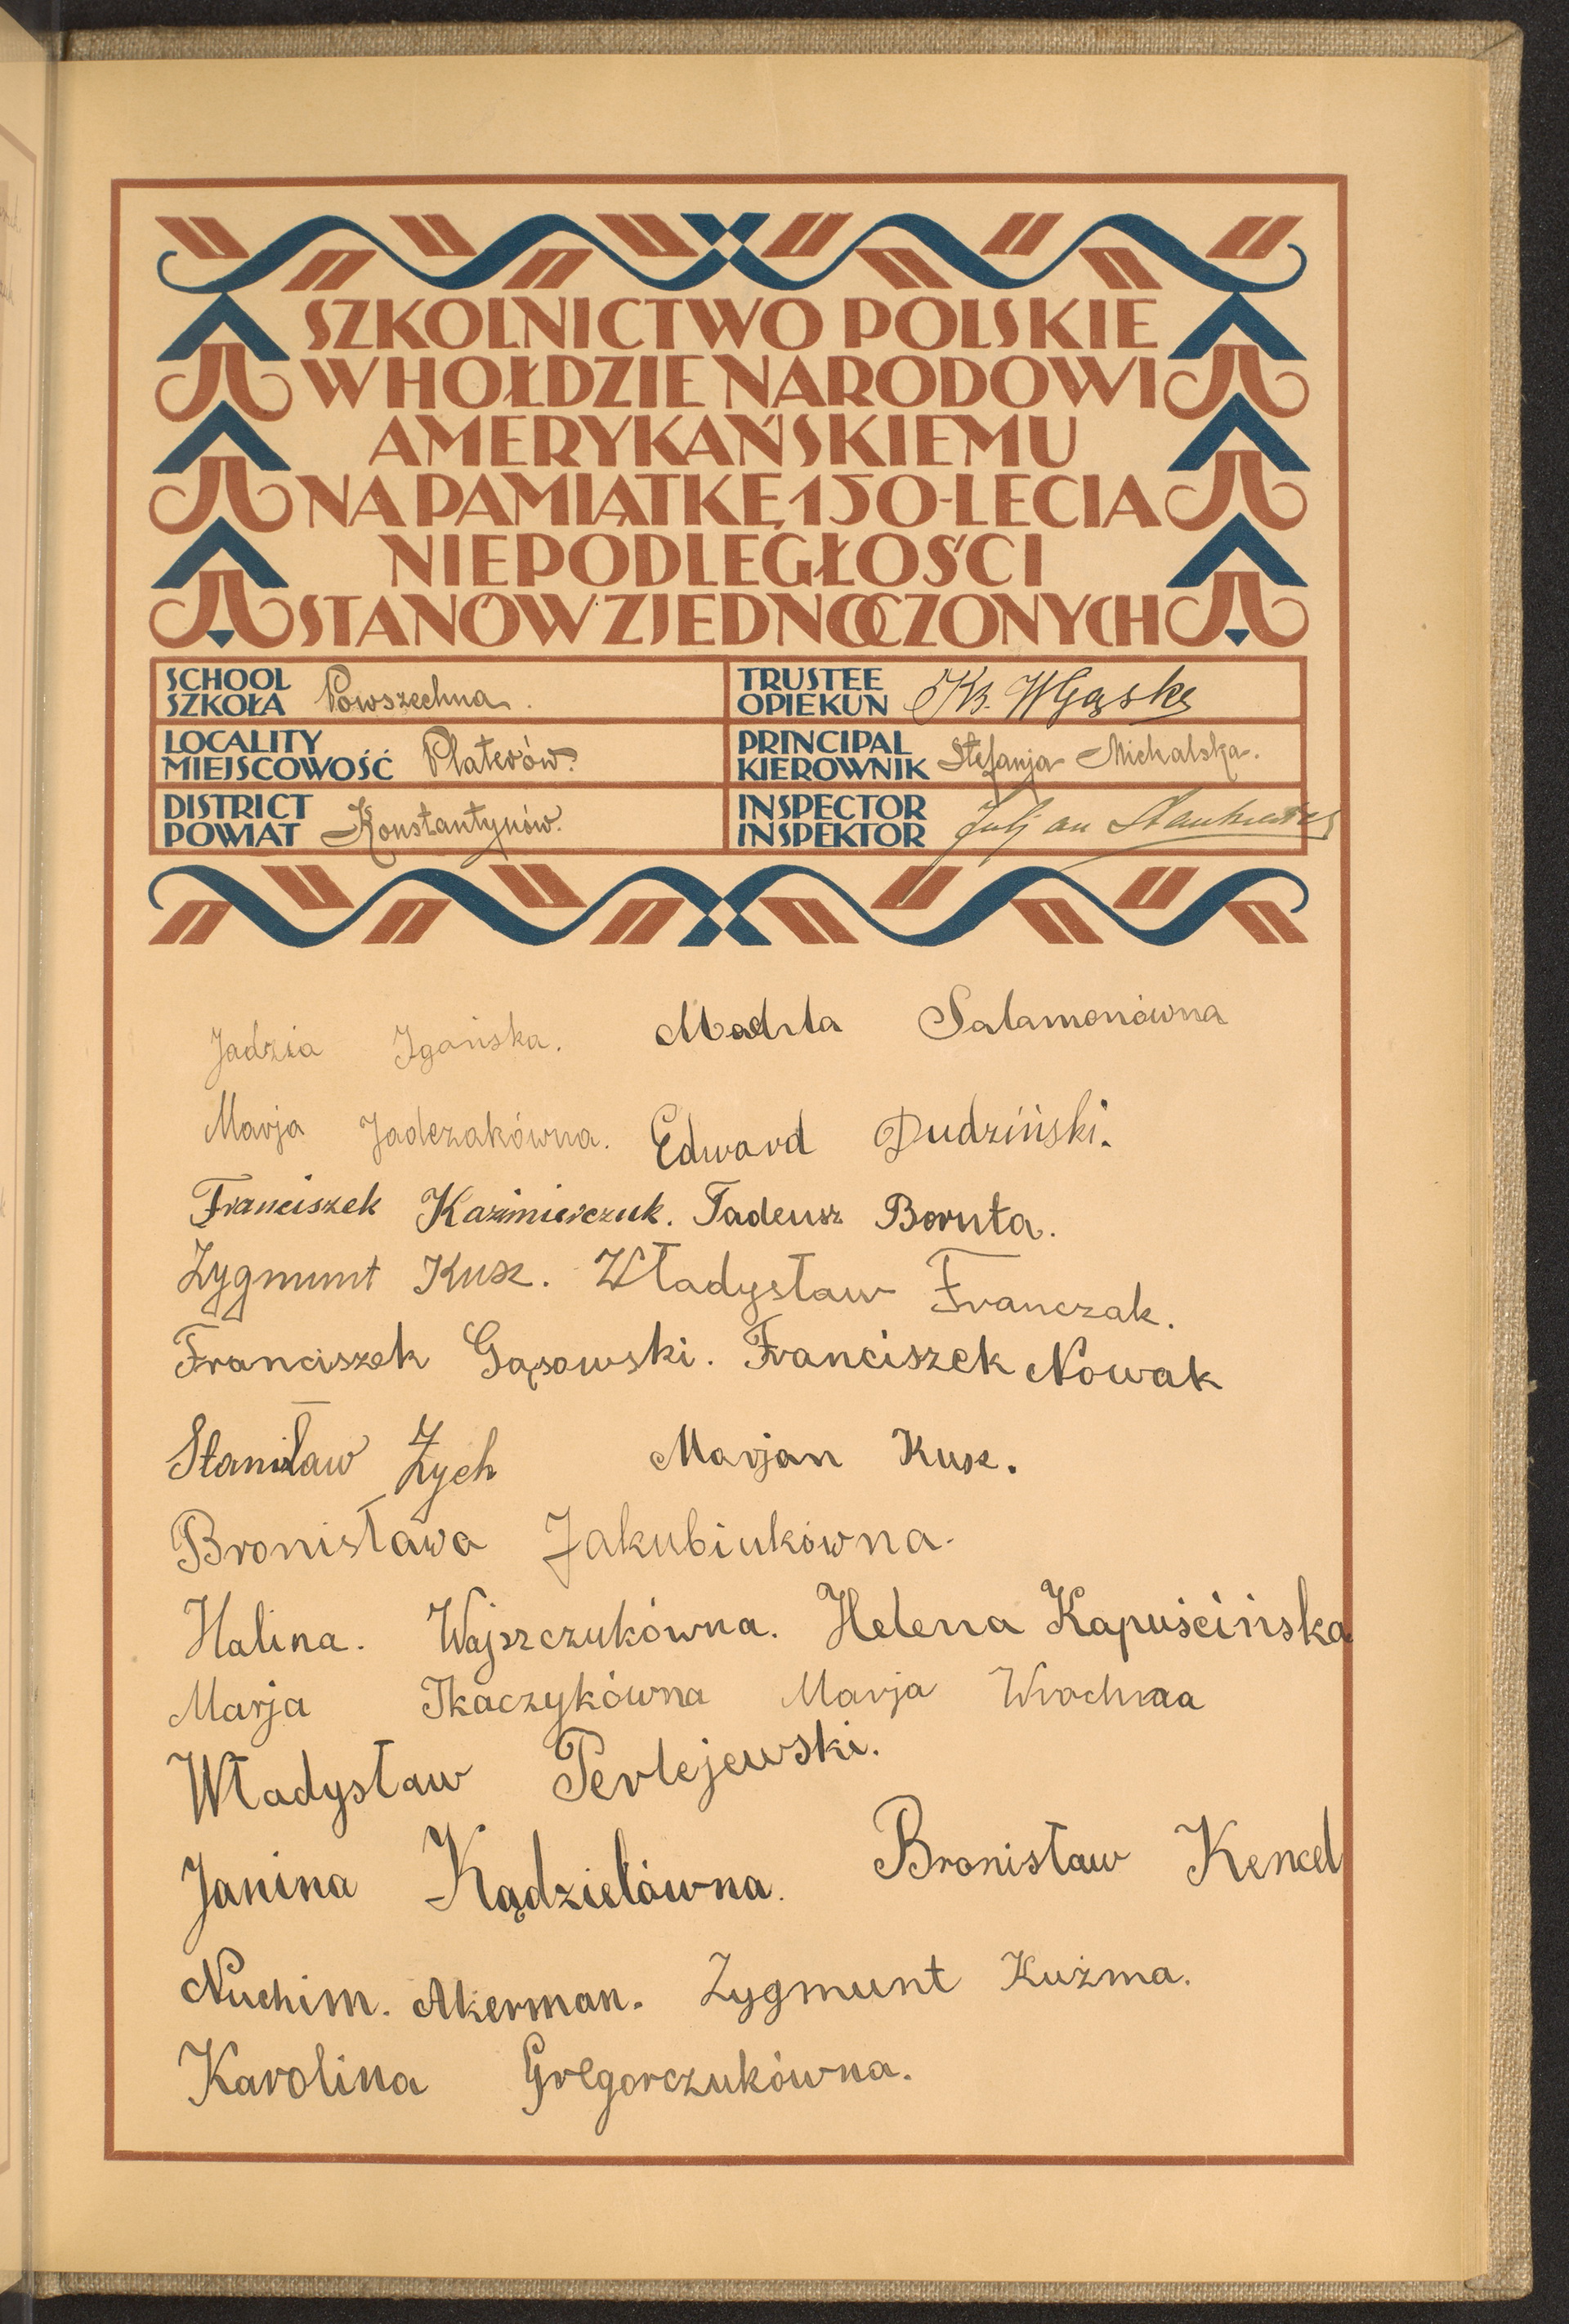 SZKOLNICTWO POLSKIE
W HOŁDZIE NARODOWI
AMERYKAŃSKIEMU
NA PAMIĄTKĘ 150-LECIA
NIEPODLEGŁOŚCI
STANÓW ZJEDNOCZONYCH
SCHOOL
SZKOŁA Powszechna.
TRUSTEE
OPIEKUN
LOCALITY
MIEJSCOWOŚĆ Platerów.
PRINCIPAL
KIEROWNIK Stefanja Michalska.
DISTRICT
POWIAT Konstantynów.
INSPECTOR
INSPEKTOR Juljan
Jadzia Igańska. Madzia Salamonówna
Marja Jadczakówna. Edward Dudziński.
Franciszek Kazimierczuk. Tadeusz Boruta.
Zygmunt Kusz. Władysław Franczak.
Franciszek Gąsowski. Franciszek Nowak
Stanisław Zych Marjan Kusz.
Bronisława Jakubiukówna.
Halina. Wajszczukówna. Helena Kapuścińska
Marja Tkaczykówna Marja Wrochna
Władysław Perlejewski.
Janina Kądzielówna. Bronisław Kencel
Nuchim. Akerman. Zygmunt Kużma.
Karolina Gregorczukówna.